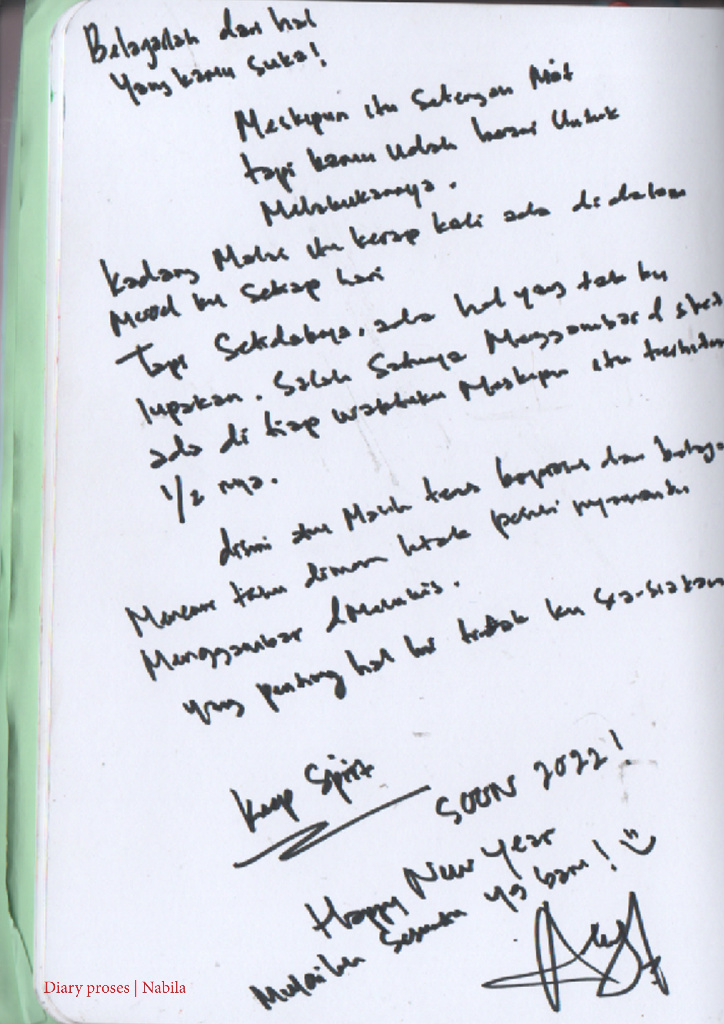 Belajarlah dari hal
Yang kamu suka!
Meskipun itu setengah Mati
tapi kamu udah besar Untuk
Melakukannya.
Kadang Malas itu kerap kali ada di dalam
Mood ku setiap hari
Tapi Setidaknya, ada hal yang tak ku
lupakan. Salah satunya Menggambar &
ada di tiap waktuku Meskipun itu
1/2 nya.
disini aku Masih terus berproses dan
Mencari tahu dimana letak posisi nyamanku
Menggambar & Melukis.
yang penting hal ini tidak ku sia-siakan
Keep Spirit
SOON 2022!
Happy New Year
Mulailah Sesuatu yg baru!
Diary proses | Nabila